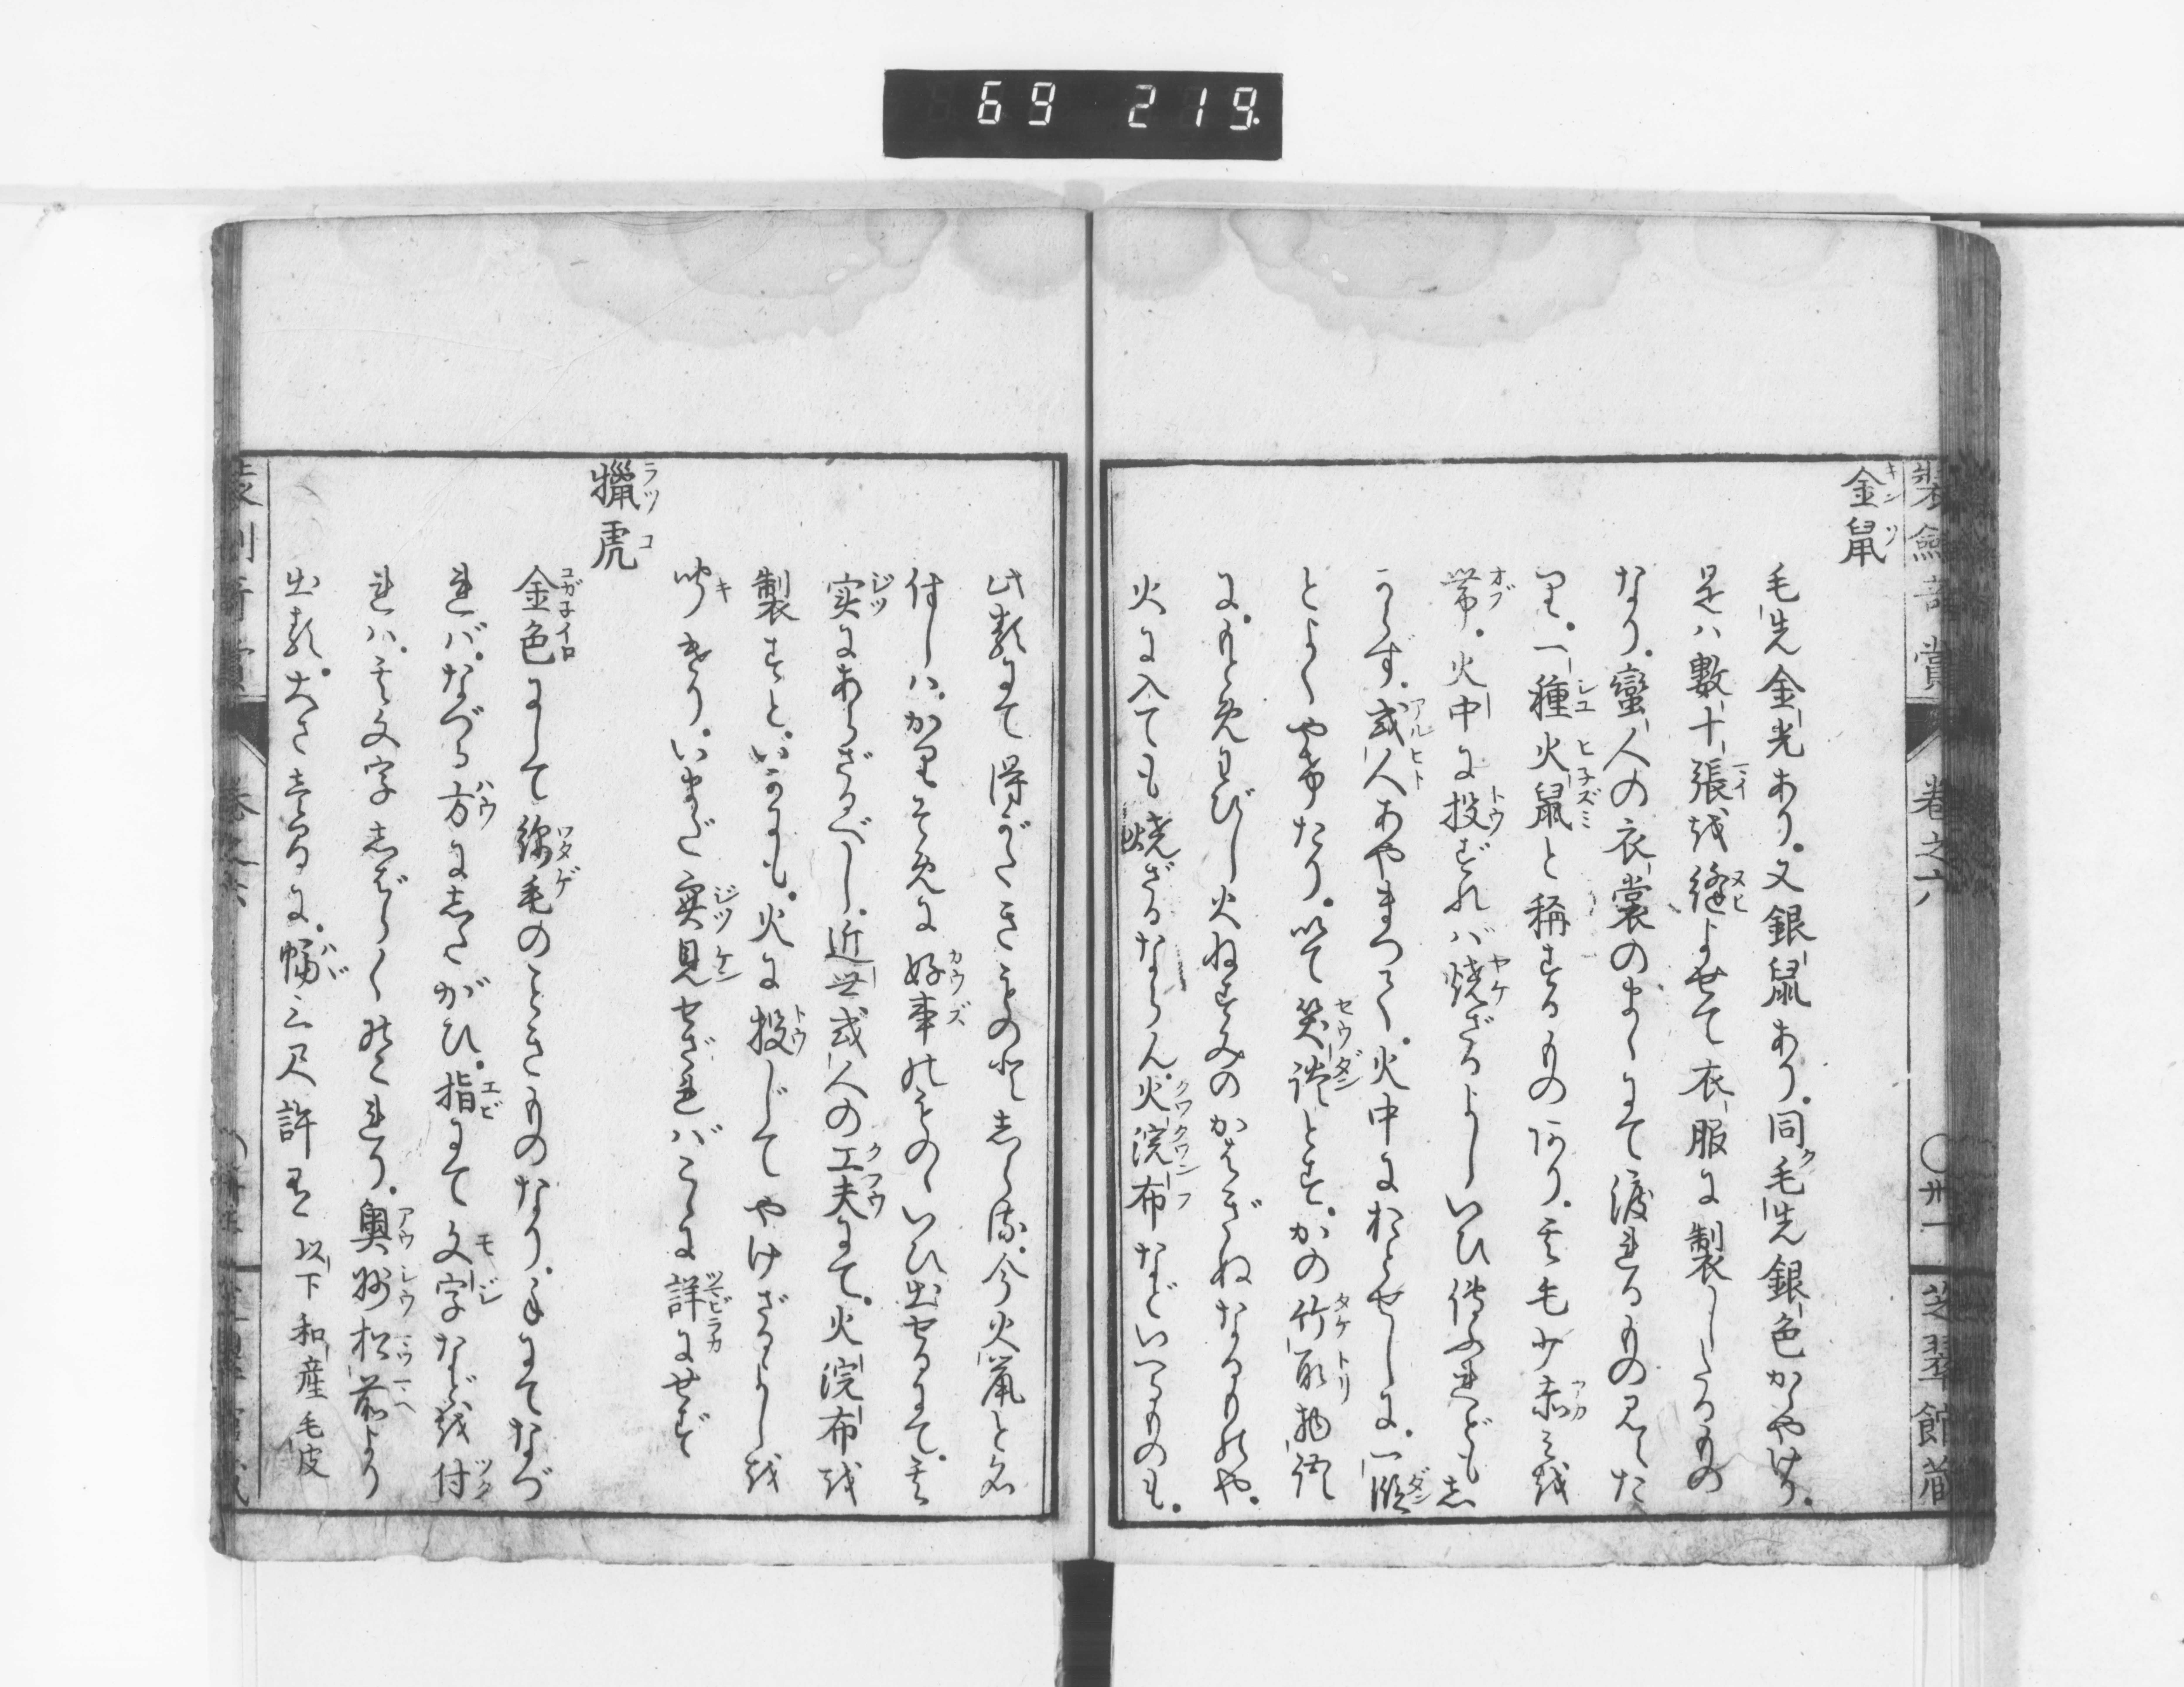 69 219.
装劔奇賞
巻之六
○卅一
芝翠館蔵
金鼠
キンソ
毛先金光あり。又銀鼠あり。同毛先銀色かゝやけり。
是ハ數十張を縫よせて衣服に製したるもの
なり。蠻人の衣裳のまゝにて渡れるもの見た
り。一種火鼠と稱するものあり。其毛少赤みを
帯。火中に投ずれバ焼ざるよしいひ傳ふれども志
らず。或人あやまつて火中におとせしに。一段
とよくやけたり。以て笑談とす。かの竹取物語
に。もとめわびし火ねずみのかはぎぬなるものや。
火に入ても焼ざるならん。火浣布などいへるものも。
此類にて得がたきもの也志らず。今火鼠と名
付しハ。かりそめに好事のものゝいひ出せるにて。其
実にあらざるべし。近世或人の工夫にて。火浣布を
製すと。いかにも。火に投じてやけざるよしを
聞けり。いまだ実見せざればこゝに詳にせず
獵虎
ラツコ
金色にして綿毛のごときものなり。手にてなづ
れバ。なづる方に志たがひ。指にて文字などを付
れハ。其文字志ばらくのこれり。奥州松前より
出る。大さ長さに。幅三尺許有 以下和産毛皮